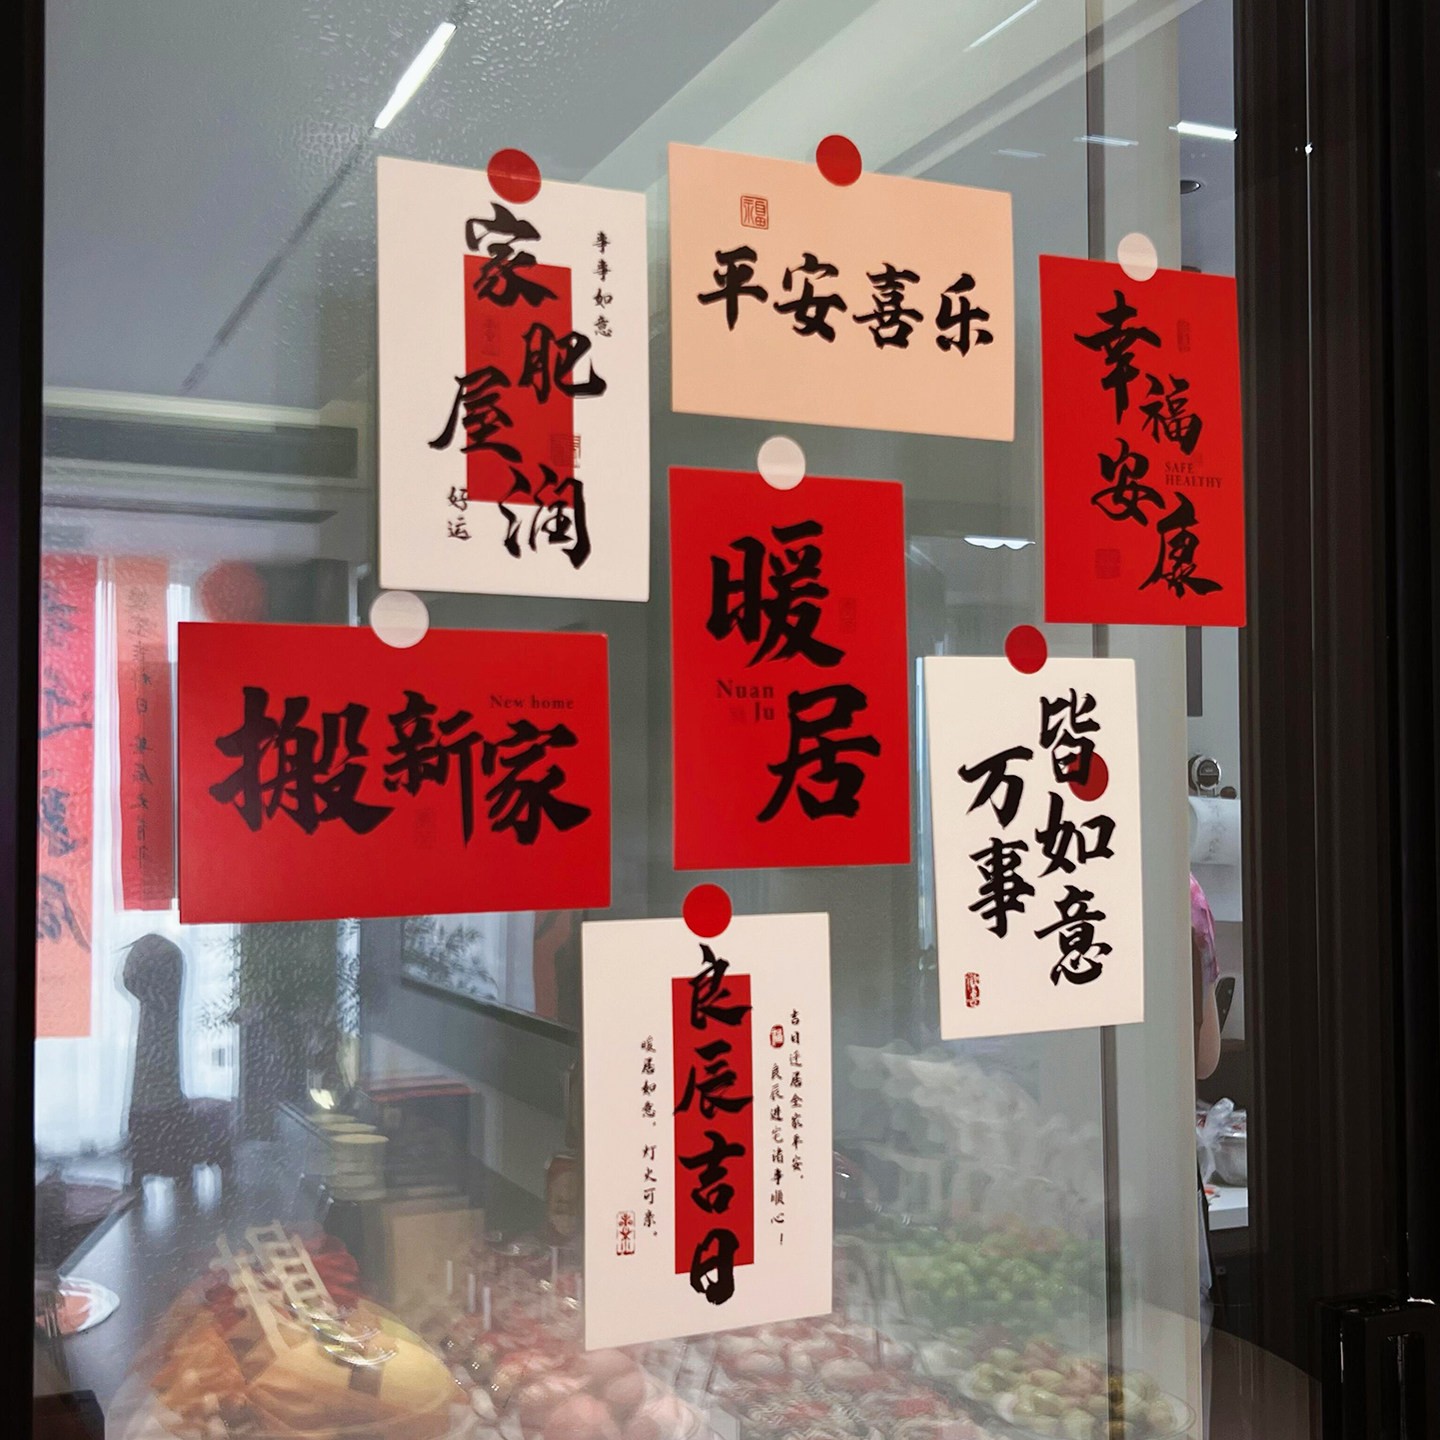 家肥屋润
事事如意
好运
福
平安喜乐
幸福安康
SAFE
HEALTHY
搬新家
New home
暖居
Nuan
Ju
万事
皆如意
良辰吉日
吉日迁居全家平安，
良辰进宅诸事顺心！
暖居如意，灯火可亲。